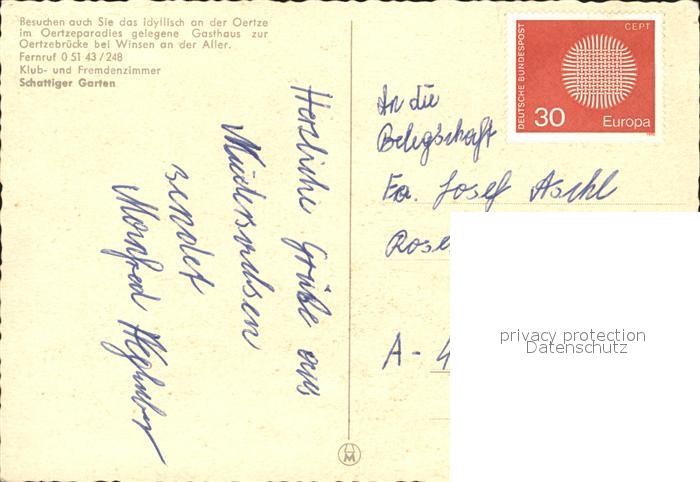 Besuchen auch Sie das idyllisch an der Oertze
im Oertzeparadies gelegene Gasthaus zur
Oertzebrücke bei Winsen an der Aller.
Fernruf 0 51 43 / 248
Klub- und Fremdenzimmer
Schattiger Garten
Herzliche Grüße aus
sendet
Manfred
DEUTSCHE BUNDESPOST
CEPT
30 Europa
An die
Belegschaft
Fa. Josef Aschl
Rose
A - 4
privacy protection
Datenschutz